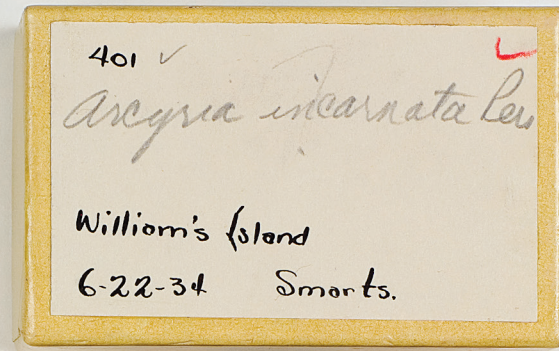 401 ✓
Arcyria incarnata Pers
William's Island
6-22-34 Smarts.